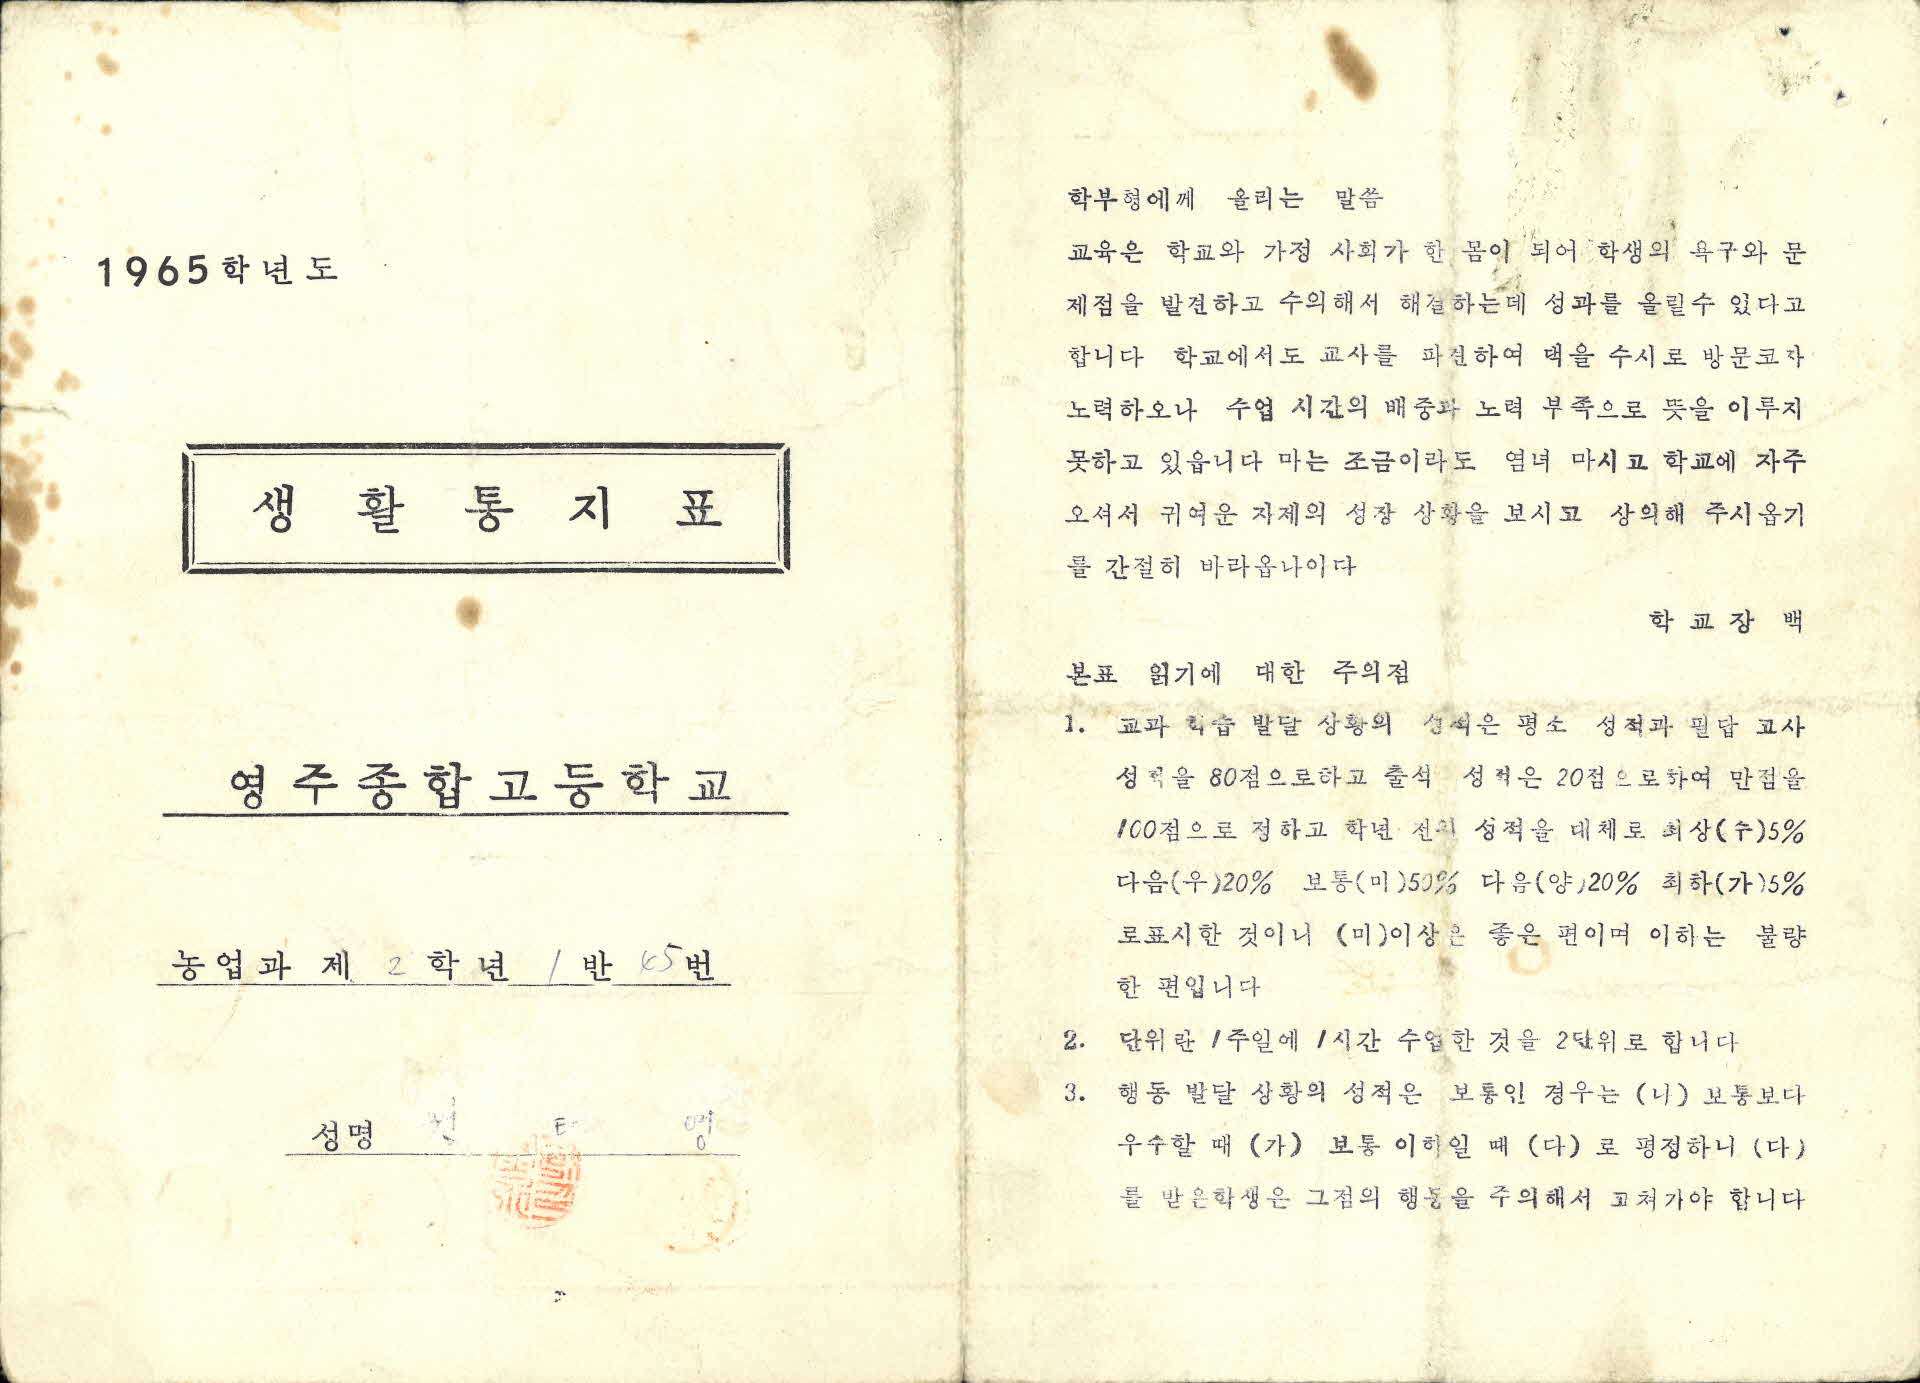 1965학년도
생활통지표
영주종합고등학교
농업과 제 2 학년 1 반 45번
성명
학부형에께 올리는 말씀
교육은 학교와 가정 사회가 한 몸이 되어 학생의 욕구와 문
제점을 발견하고 수의해서 해결하는데 성과를 올릴수 있다고
합니다 학교에서도 교사를 파견하여 댁을 수시로 방문코자
노력하오나 수업 시간의 배중과 노력 부족으로 뜻을 이루지
못하고 있읍니다 마는 조금이라도 염녀 마시고 학교에 자주
오셔서 귀여운 자제의 성장 상황을 보시고 상의해 주시옵기
를 간절히 바라옵나이다
학교장 백
본표 읽기에 대한 주의점
1. 교과 학습 발달 상황의 성적은 평소 성적과 필답 고사
성적을 80점으로하고 출석 성적은 20점으로하여 만점을
100점으로 정하고 학년 전의 성적을 대체로 최상(수)5%
다음(우)20% 보통(미)50% 다음(양)20% 최하(가)5%
로표시한 것이니 (미)이상은 좋은 편이며 이하는 불량
한 편입니다
2. 단위란 1주일에 1시간 수업한 것을 2단위로 합니다
3. 행동 발달 상황의 성적은 보통인 경우는 (니) 보통보다
우수할 때 (가) 보통 이하일 때 (다) 로 평정하니 (다)
를 받은학생은 그점의 행동을 주의해서 고쳐가야 합니다